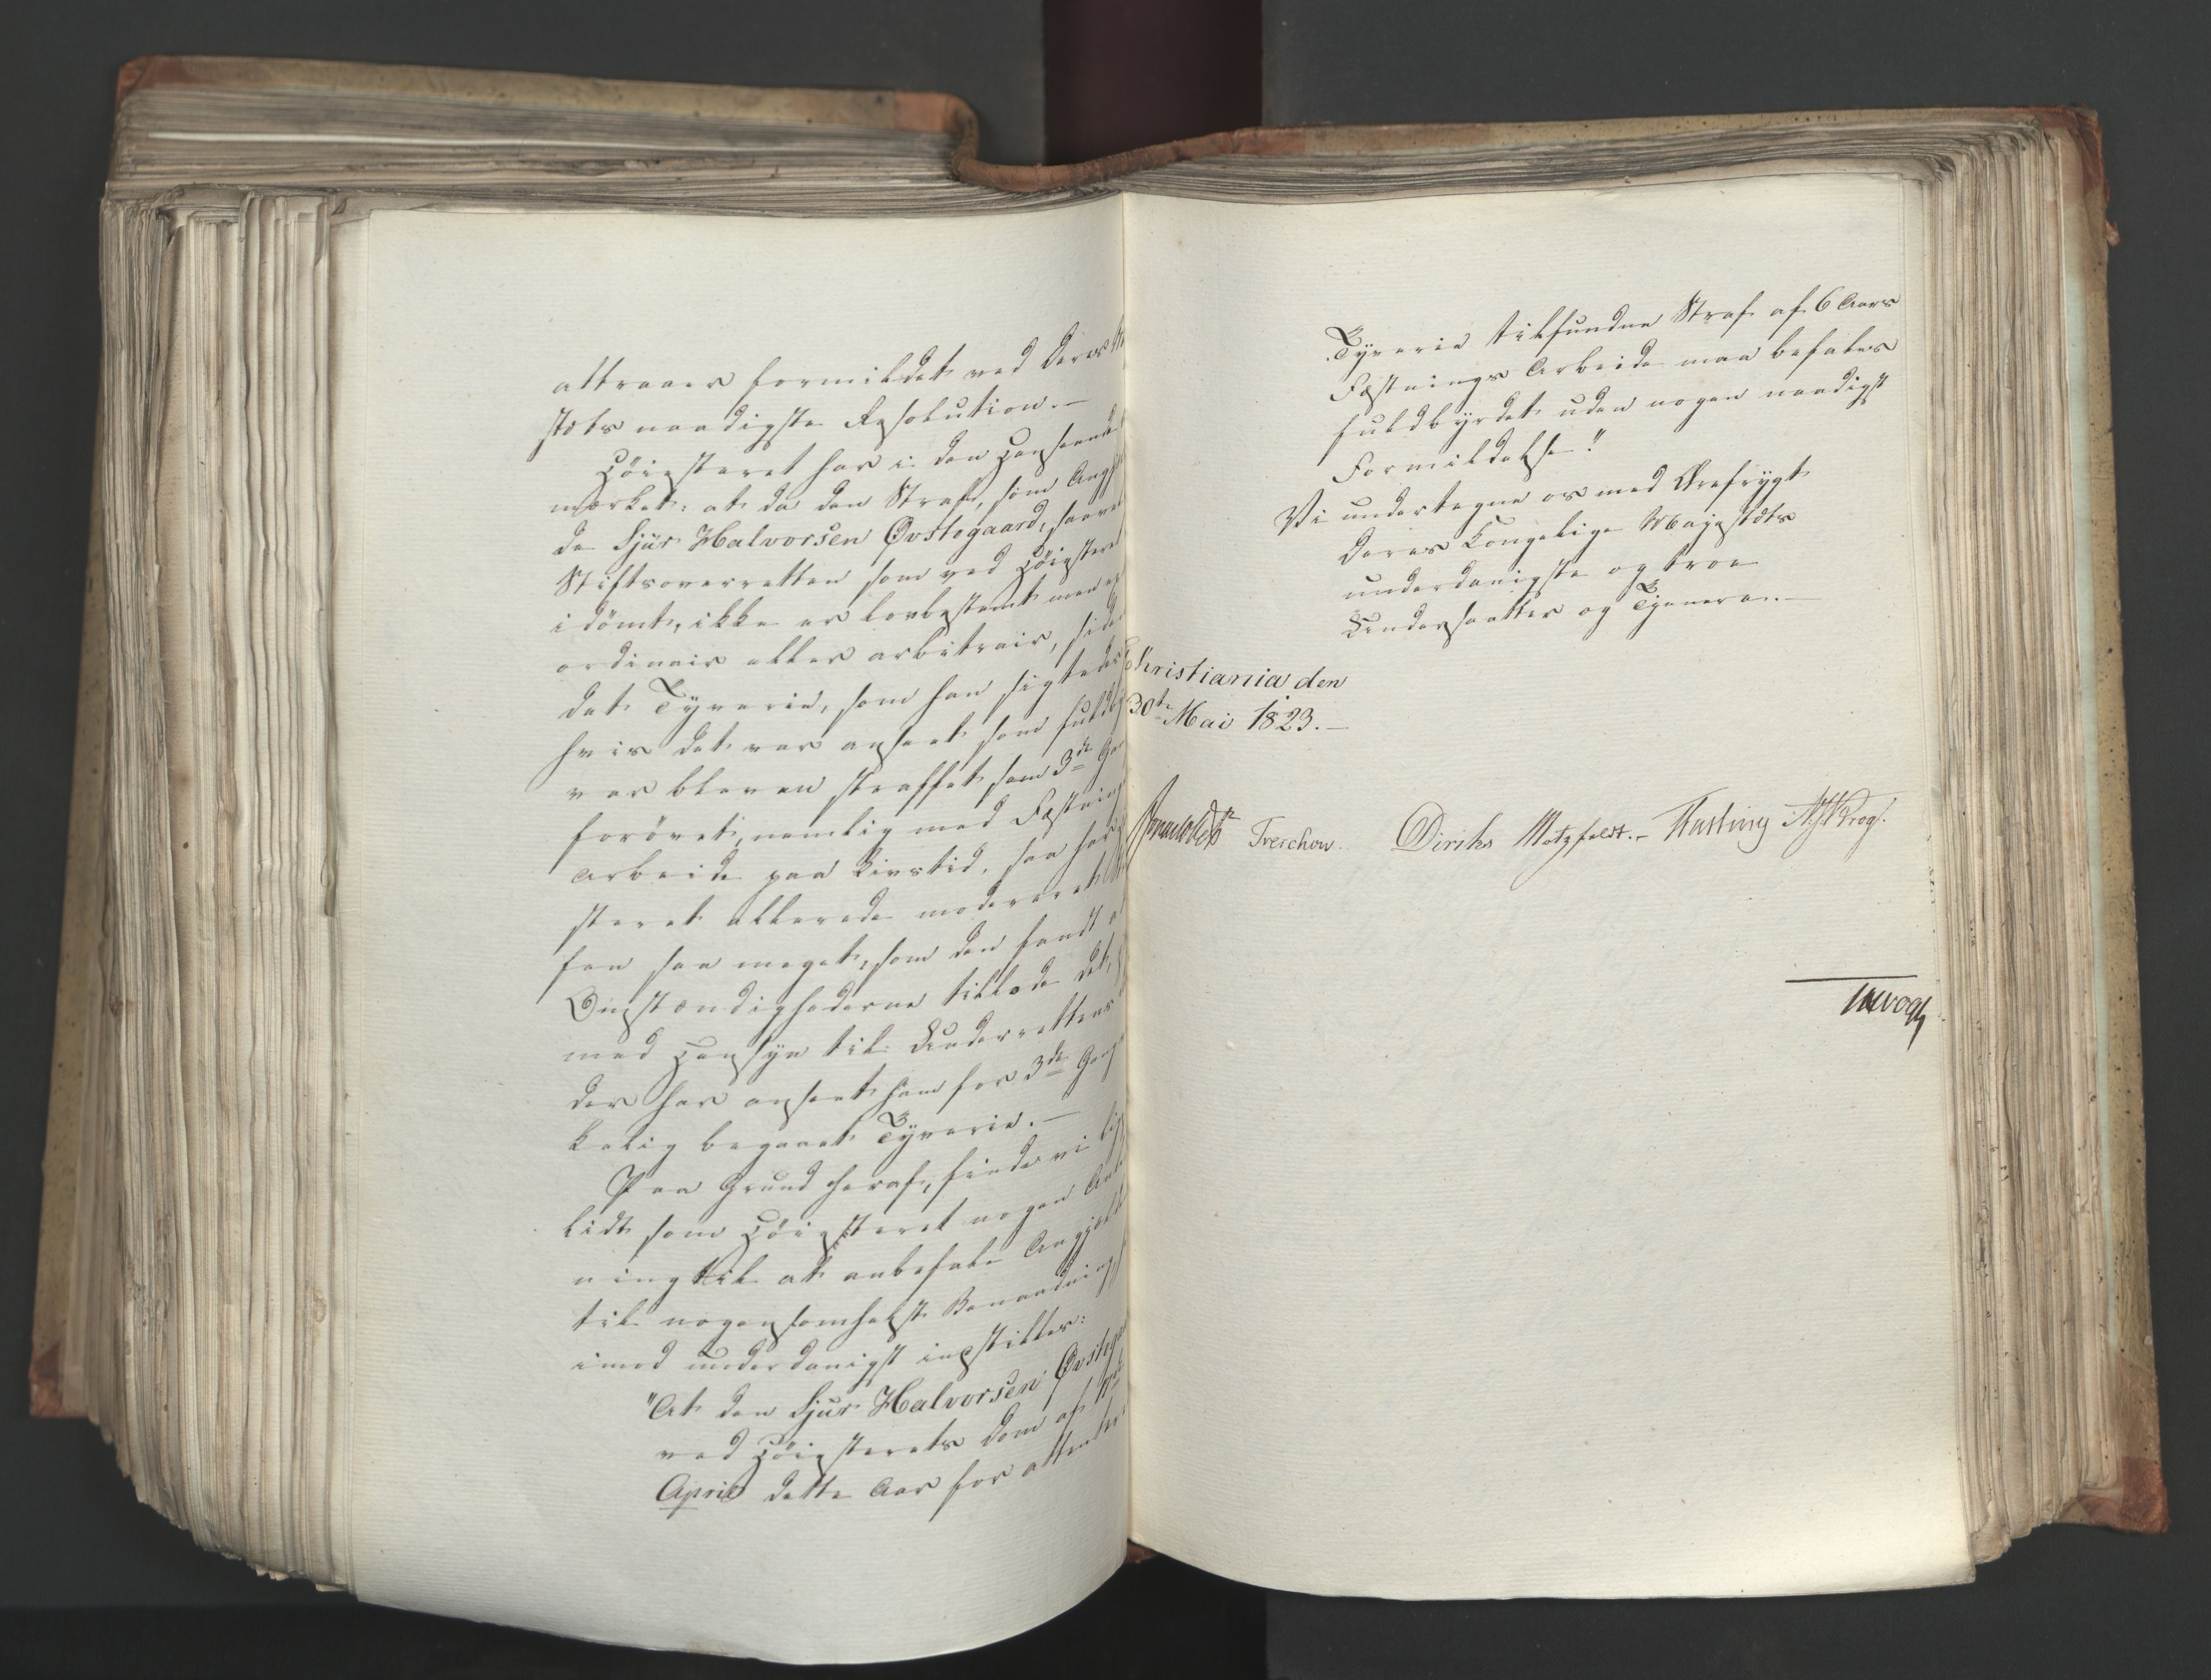 attraaer formildet ved Deres
stæts naadigste Resolution.—
Høiesteret har i den Henseende
mærket: at da den Straf, som Angjel
de Sjur Halvorsen Øvstegaard, saavel
Stiftsoverretten som ved Høiesteret
idømt, ikke er lovbestemt men
ordinair eller arbitrair, siden
det Tyverie, som han sigtedes
hvis det var anseet som fuldby
var bleven straffet som 3de Gang
forövet, nemlig med Fæstnings
Arbeide paa Livstid, saa har
steret allerede modereret
fen saa meget, som den fandt at
Omstændighederne tillode det,
med Hensyn til Underrettens
der har anseet ham for 3de Gang
kelig begaaet Tyverie.—
Paa Grund heraf, finde vi lige
lidt som Høiesteret nogen Anled
ning til at anbefale Angjeldende
til nogensomhelst Benaadning
imod underdanigst indstilles:
"At den Sjur Halvorsen Øvstega
ved Høiesterets Dom af 17de
April dette Aar for attenteret
Tyverie tilfundne Straf af 6 Aars
Fæstnings Arbeide maa befales
fuldbyrdet uden nogen naadigst
Formildelse."
Vi undertegne os med Ærefrygt
Deres Kongelige Majestæts
underdanigste og troe
Undersaatter og Tjenere.—
Christiania den
30te Mai 1823.—
Treschow. Diriks Motzfeldt.— Fasting